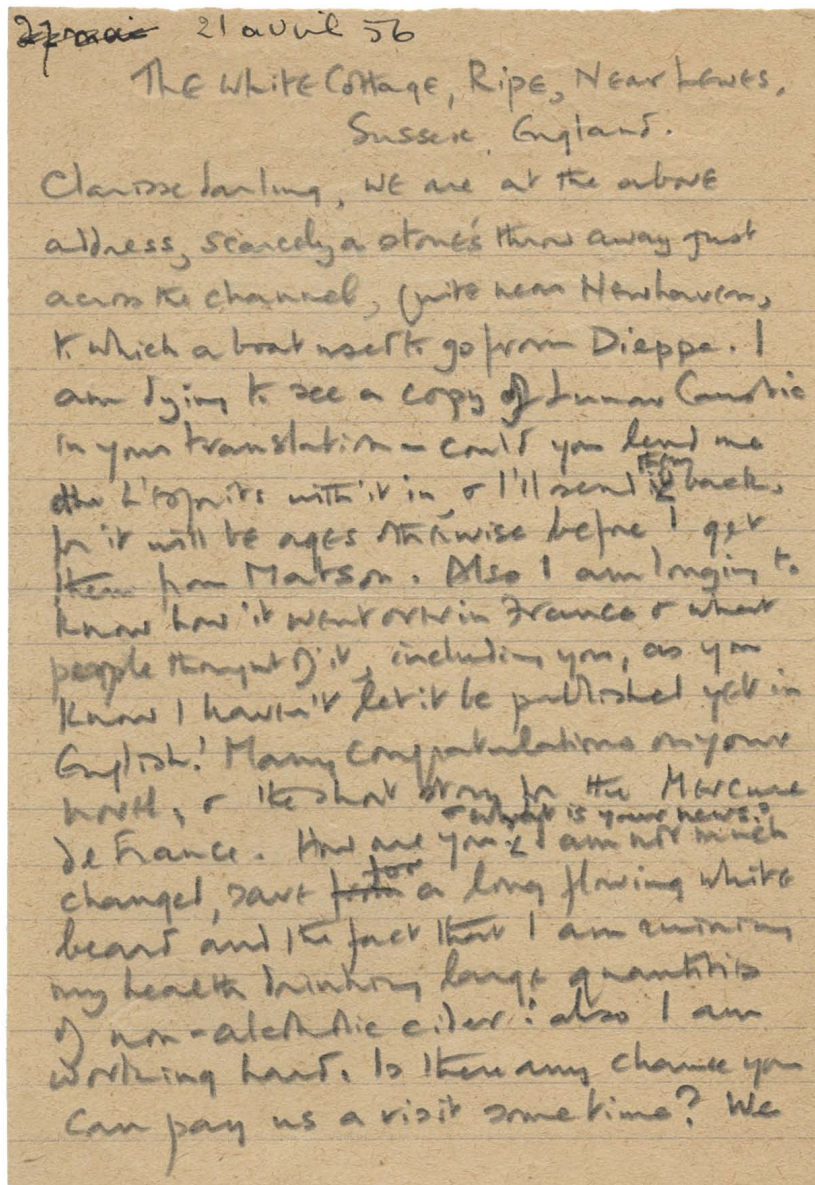 21 avril 56
The White Cottage, Ripe, Near Lewes,
Sussex, England.
Clarisse darling, we are at the above
address, scarcely a stone's throw away just
across the channel, quite near Newhaven,
to which a boat used to go from Dieppe. I
am dying to see a copy of Lunar Caustic
in your translation – could you lend me
the L'Esprits with it in, & I'll send them back,
for it will be ages otherwise before I get
them from Matson. Also I am longing to
know how it went over in France & what
people thought of it, including you, as you
know I haven't let it be published yet in
English! Many congratulations on your
novel, & the short story for the Mercure
de France. How are you & what is your news? I am not much
changed, save for a long flowing white
beard and the fact that I am ruining
my health drinking large quantities
of non-alcoholic cider: also I am
working hard. Is there any chance you
can pay us a visit sometime? We